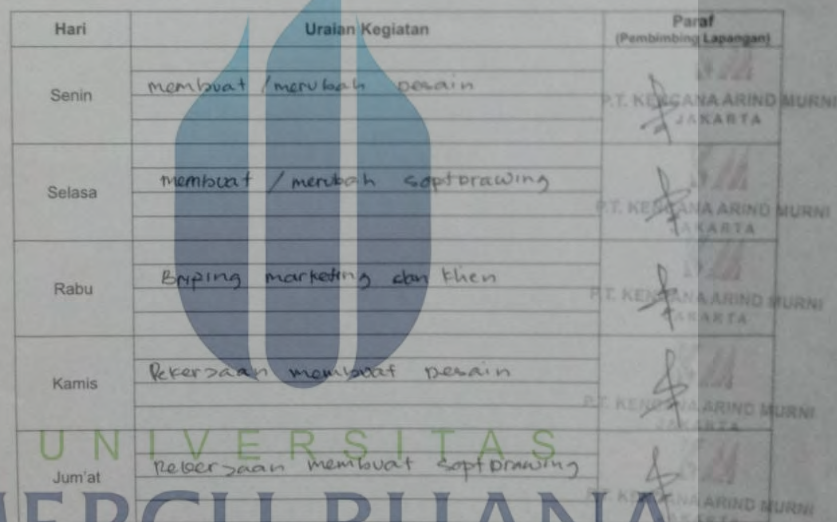 Hari Uraian Kegiatan Paraf
(Pembimbing Lapangan)
Senin membuat / merubah desain
P.T. KENCANA ARIND MURNI
JAKARTA
Selasa membuat / merubah soptDrawing
P.T. KENCANA ARIND MURNI
JAKARTA
Rabu Briping marketing dan klien
P.T. KENCANA ARIND MURNI
JAKARTA
Kamis Pekerjaan membuat Desain
P.T. KENCANA ARIND MURNI
JAKARTA
UNIVERSITAS
Jum'at Pekerjaan membuat soptDrawing
MERCU BUANA
P.T. KENCANA ARIND MURNI